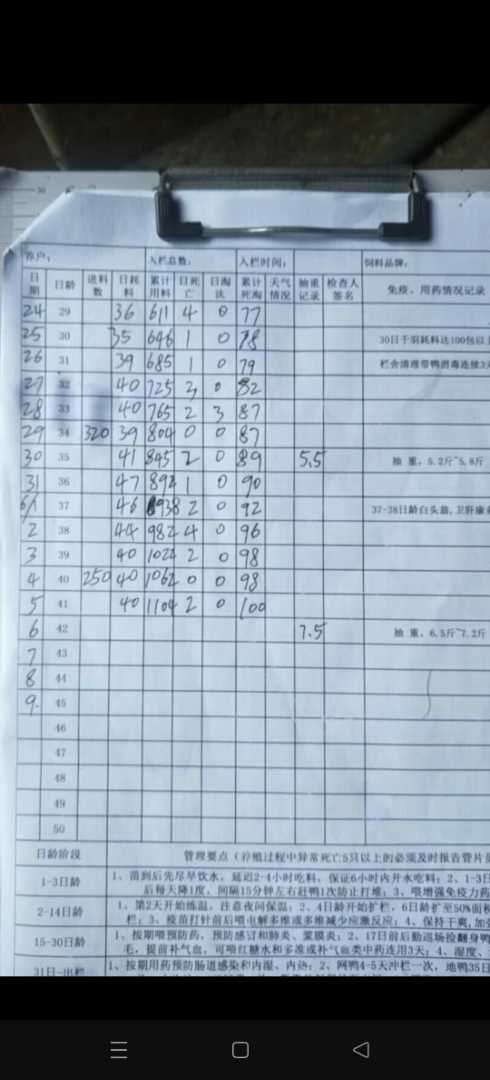 养户： 入栏总数： 入栏时间： 饲料品牌：
日期 日龄 进料数 日耗料 累计用料 日死亡 日淘汰 累计死淘 天气情况 抽重记录 检查人签名 免疫、用药情况记录
24 29 36 611 4 0 77
25 30 35 646 1 0 78 30日千羽耗料达100包以
26 31 39 685 1 0 79 栏舍清理带鸭消毒连续3
27 32 40 725 3 0 82
28 33 40 765 2 3 87
29 34 320 39 804 0 0 87
30 35 41 845 2 0 89 5.5 抽 重：5.2斤~5.8斤
31 36 47 892 1 0 90
6/1 37 46 938 2 0 92 37-38日龄白头翁，卫肝康
2 38 44 982 4 0 96
3 39 40 1022 2 0 98
4 40 250 40 1062 0 0 98
5 41 40 1104 2 0 100
6 42 7.5 抽 重：6.5斤~7.2斤
7 43
8 44
9. 45
46
47
48
49
50
日龄阶段 管理要点（养殖过程中异常死亡5只以上的必须及时报告管片
1-3日龄 1、苗到后先尽早饮水，延迟2-4小时吃料，保证6小时内开水吃料；2、1-3日
后每天降1度，间隔15分钟左右赶鸭1次防止打堆；3、喂增强免疫力药
2-14日龄 1、第2天开始练温，注意夜间保温；2、4日龄开始扩栏，6日龄扩至50%面积
栏；3、疫苗打针前后喂电解多维或多维减少应激反应；4、保持干爽，加
15-30日龄 1、按期喂预防药，预防感冒和肺炎、浆膜炎；2、17日前后勤巡场捡翻身鸭
毛，提前补气血，可喂红糖水和多维或补气血类中药连用3天；4、湿度、
31日-出栏 1、按期用药预防肠道感染和内湿、内热；2、网鸭4-5天冲栏一次，地鸭35日